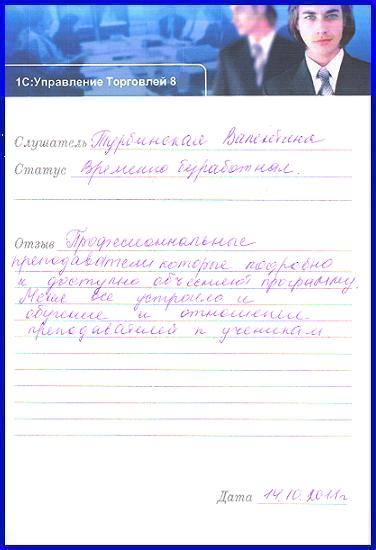 1С:Управление Торговлей 8
Слушатель Турбинская Валентина
Статус Временно безработная.
Отзыв Професиональные
преподаватели которые подробно
и доступно объесняют программу.
Меня все устроило и
обучение и отношение
преподавателей к ученикам
Дата 14.10.2011г